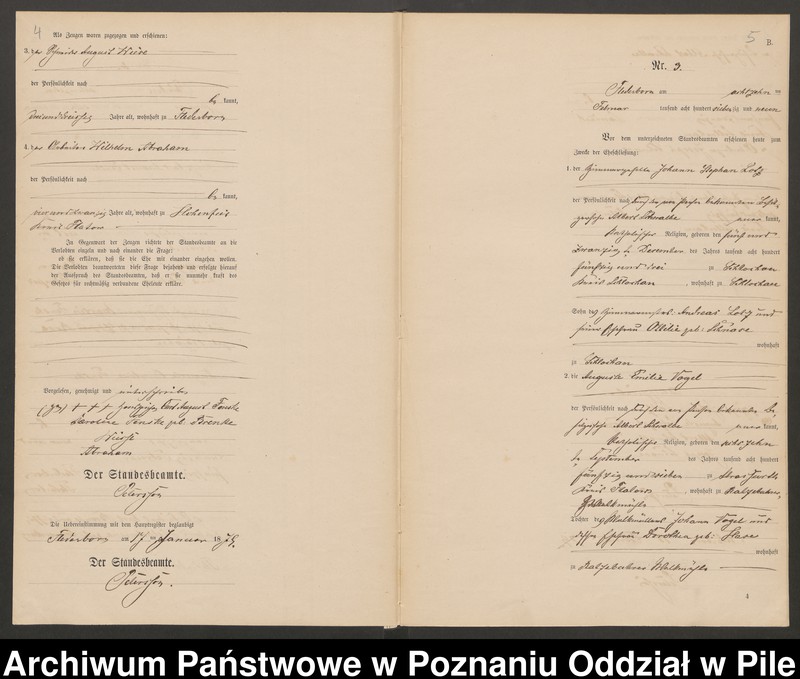 4
Als Zeugen waren zugezogen und erschienen:
3. der Schmidt August Weise
der Persönlichkeit nach
be kannt,
zweiunddreißig Jahre alt, wohnhaft zu Flederborn
4. der Arbeiter Wilhelm Abraham
der Persönlichkeit nach
be kannt,
vierundzwanzig Jahre alt, wohnhaft zu Hohenfeir
Kreis Flatow
In Gegenwart der Zeugen richtete der Standesbeamte an die
Verlobten einzeln und nach einander die Frage:
ob sie erklären, daß sie die Ehe mit einander eingehen wollen.
Die Verlobten beantworteten diese Frage bejahend und erfolgte hierauf
der Ausspruch des Standesbeamten, daß er sie nunmehr kraft des
Gesetzes für rechtmäßig verbundene Eheleute erkläre.
Vorgelesen, genehmigt und unterschrieben
(gez) + + + Handzeichen Carl August Fenske
Caroline Fenske geb.
Weise
Abraham
Der Standesbeamte.
Petersson
Die Uebereinstimmung mit dem Hauptregister beglaubigt
Flederborn am 17 ten Januar 1879.
Der Standesbeamte.
Petersson.
5
B.
Nr. 3.
Flederborn am achtzehn ten
Februar tausend acht hundert siebenzig und neun
Vor dem unterzeichneten Standesbeamten erschienen heute zum
Zwecke der Eheschließung:
1. der Zimmergeselle Johann Stephan Lotz
der Persönlichkeit nach durch den von Person bekannten
Albert Schwalbe aner kannt,
katholischer Religion, geboren den fünf und
zwanzig ten December des Jahres tausend acht hundert
fünfzig und drei zu Schlochau
Kreis Schlochau, wohnhaft zu Schlochau
Sohn des Zimmermstrs. Andreas Lotz und
seiner Ehefrau Ottilie geb.
wohnhaft
zu Schlochau
2. die Auguste Emilie Vogel
der Persönlichkeit nach durch den von Person bekannten Be-
Albert Schwalbe aner kannt,
katholischer Religion, geboren den achtzehn
ten September des Jahres tausend acht hundert
fünfzig und sieben zu
Kreis Flatow, wohnhaft zu Ratzebuhrer
Walkmühle
Tochter des Walkmüllers Johann Vogel und
dessen Ehefrau Dorothea geb:
wohnhaft
zu Ratzebuhrer Walkmühle
1
Archiwum Państwowe w Poznaniu Oddział w Pile